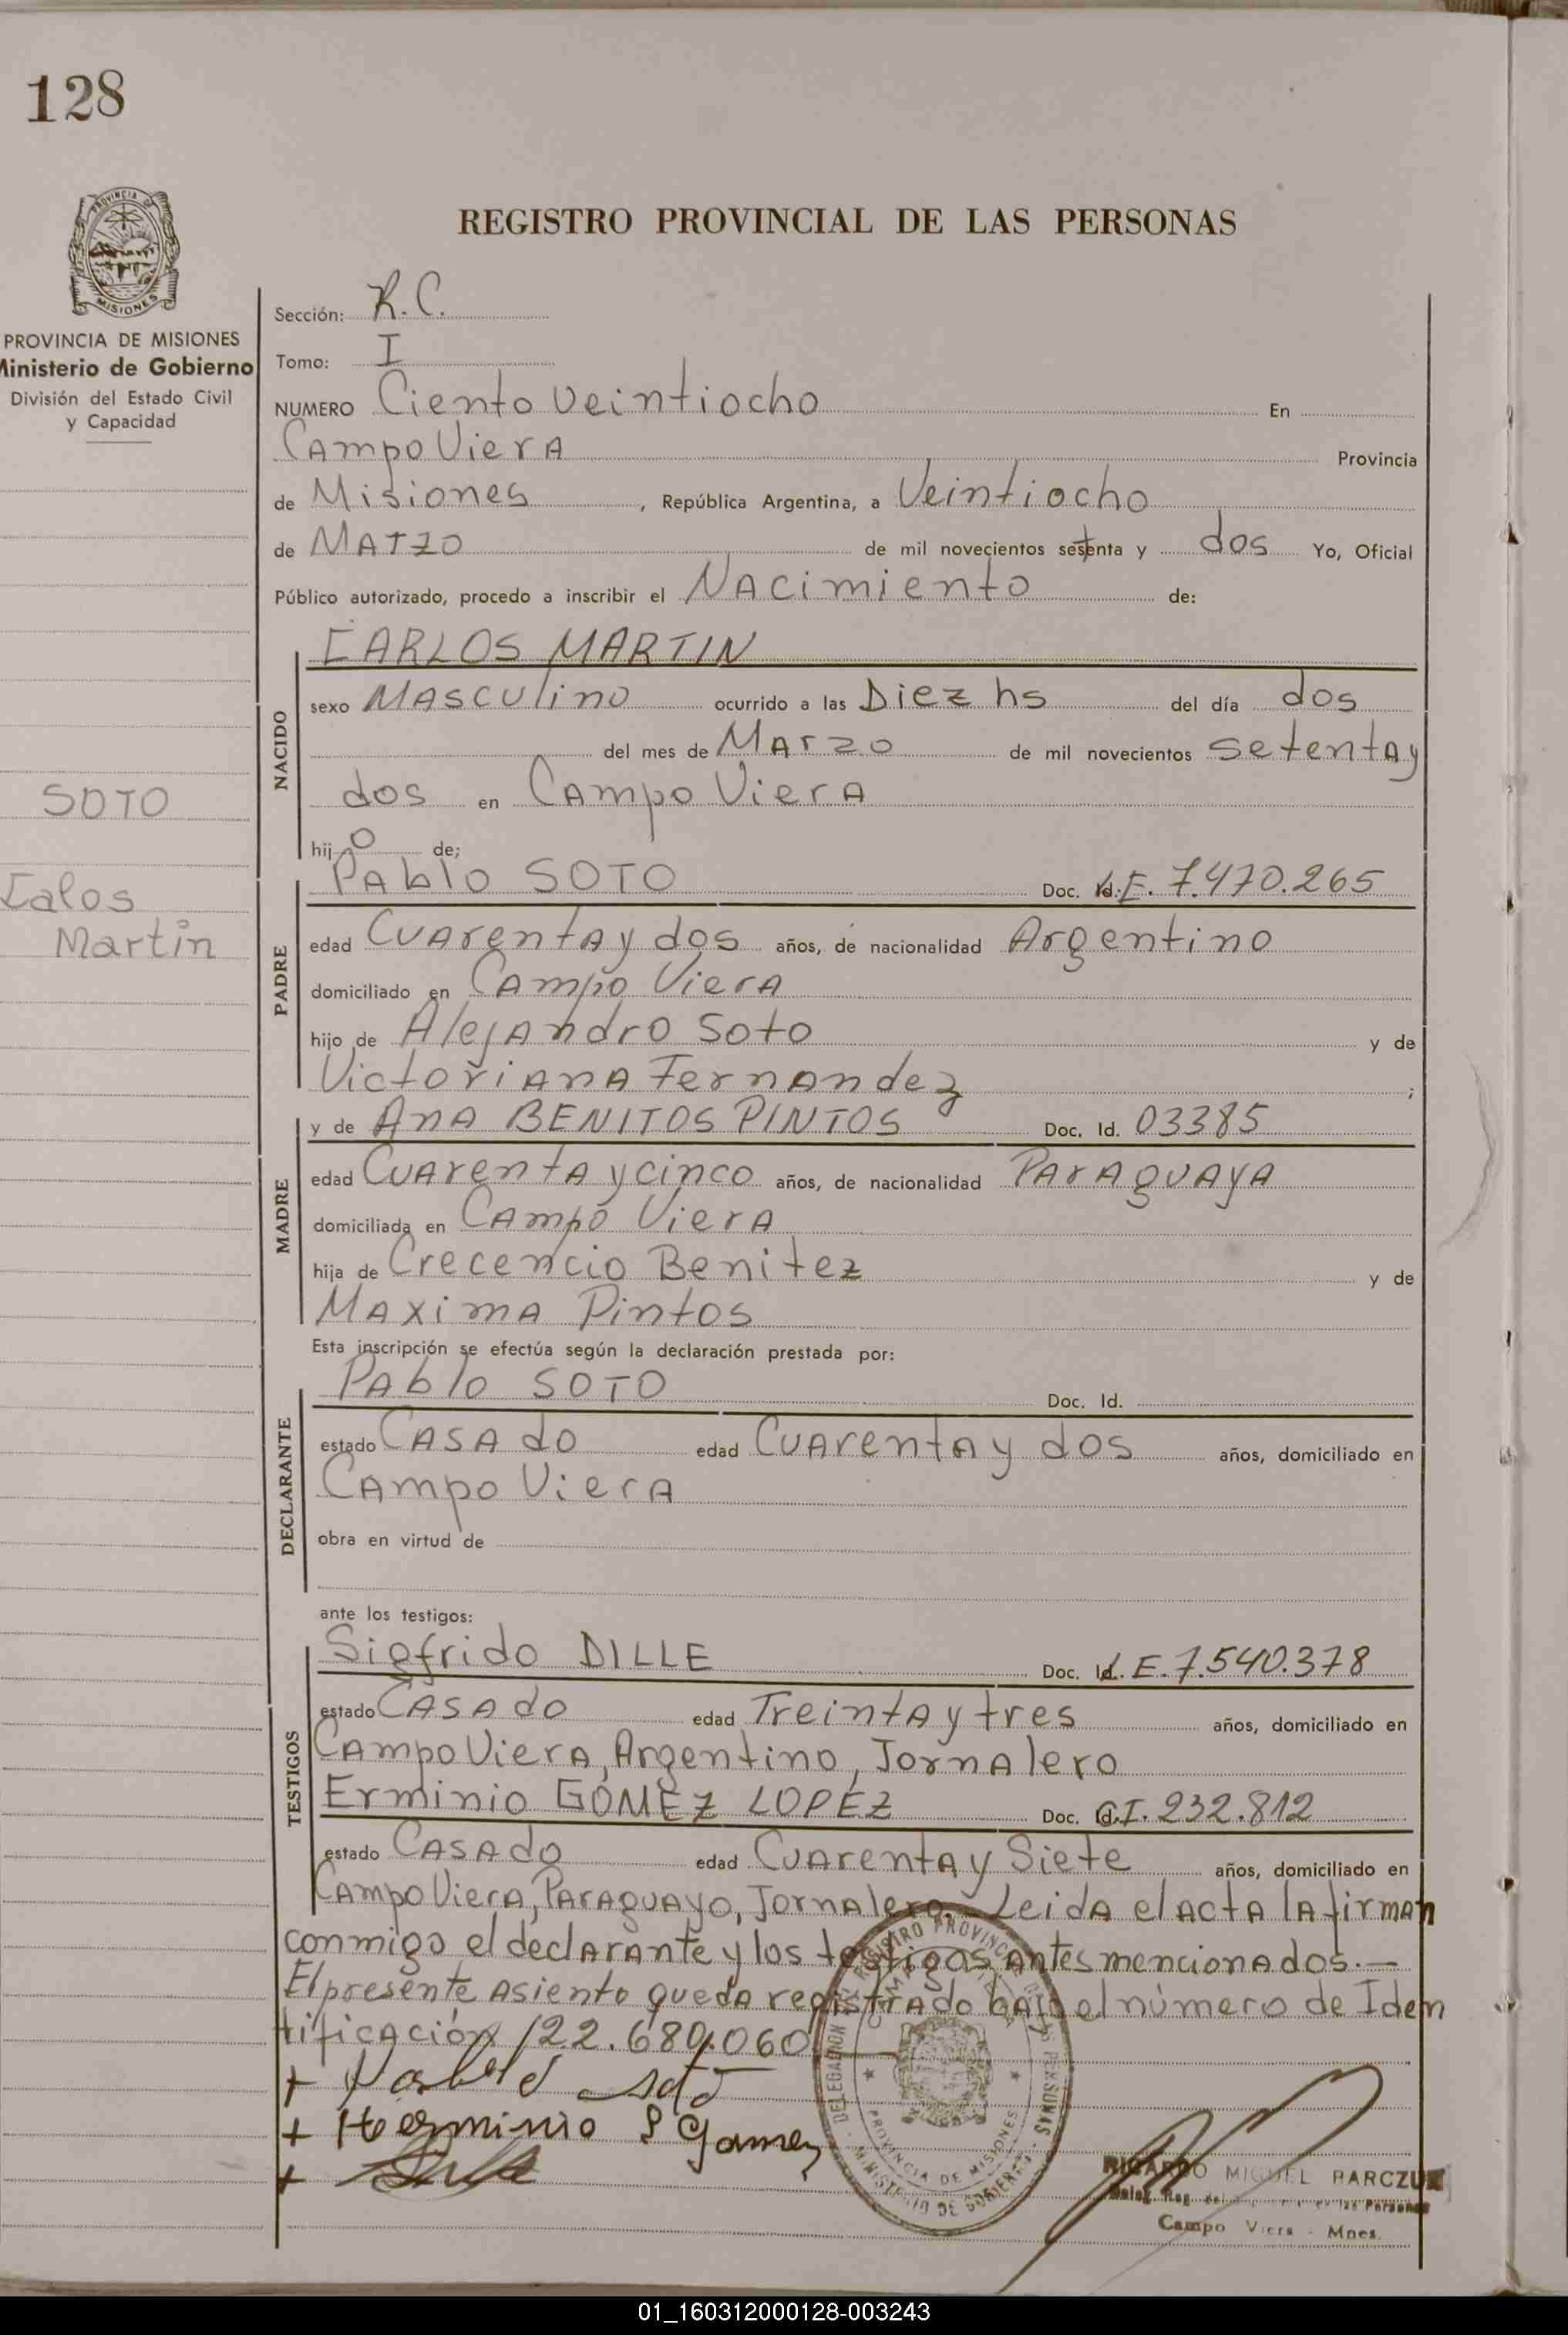 128
PROVINCIA DE
MISIONES
PROVINCIA DE MISIONES
Ministerio de Gobierno
División del Estado Civil
y Capacidad
REGISTRO PROVINCIAL DE LAS PERSONAS
Sección: R.C.
Tomo: I
NUMERO Ciento Veintiocho En
Campo Viera Provincia
de Misiones, República Argentina, a Veintiocho
de Marzo de mil novecientos setenta y dos Yo, Oficial
Público autorizado, procedo a inscribir el Nacimiento de:
NACIDO
CARLOS MARTIN
sexo Masculino ocurrido a las Diez hs del día dos
del mes de Marzo de mil novecientos setenta y
dos en Campo Viera
hijo de;
SOTO
Calos
Martin
PADRE
Pablo SOTO Doc. Id. L.E. 7.470.265
edad Cuarenta y dos años, de nacionalidad Argentino
domiciliado en Campo Viera
hijo de Alejandro Soto y de
Victoriana Fernandez ;
MADRE
y de Ana BENITOS PINTOS Doc. Id. 03385
edad Cuarenta y cinco años, de nacionalidad Paraguaya
domiciliada en Campo Viera
hija de Crecencio Benitez y de
Maxima Pintos
Esta inscripción se efectúa según la declaración prestada por:
DECLARANTE
Pablo SOTO Doc. Id.
estado Casado edad Cuarenta y dos años, domiciliado en
Campo Viera
obra en virtud de
ante los testigos:
TESTIGOS
Sigfrido DILLE Doc. Id. L.E. 7.540.378
estado Casado edad Treinta y tres años, domiciliado en
Campo Viera, Argentino, Jornalero
Erminio GÓMEZ LOPEZ Doc. Id. C.I. 232.812
estado Casado edad Cuarenta y Siete años, domiciliado en
Campo Viera, Paraguayo, Jornalero.- Leida el acta la firman
conmigo el declarante y los testigos antes mencionados.—
El presente asiento queda registrado bajo el número de Iden
tificación 122.680.060
+ Pablo Soto
+ Herminio L Gomez
+
DELEGACION DEL REGISTRO PROVINCIAL DE LAS PERSONAS
CAMPO VIERA
PROVINCIA DE MISIONES
MINISTERIO DE GOBIERNO
RICARDO MIGUEL PARCZUK
Campo Viera - Mnes.
01_160312000128-003243